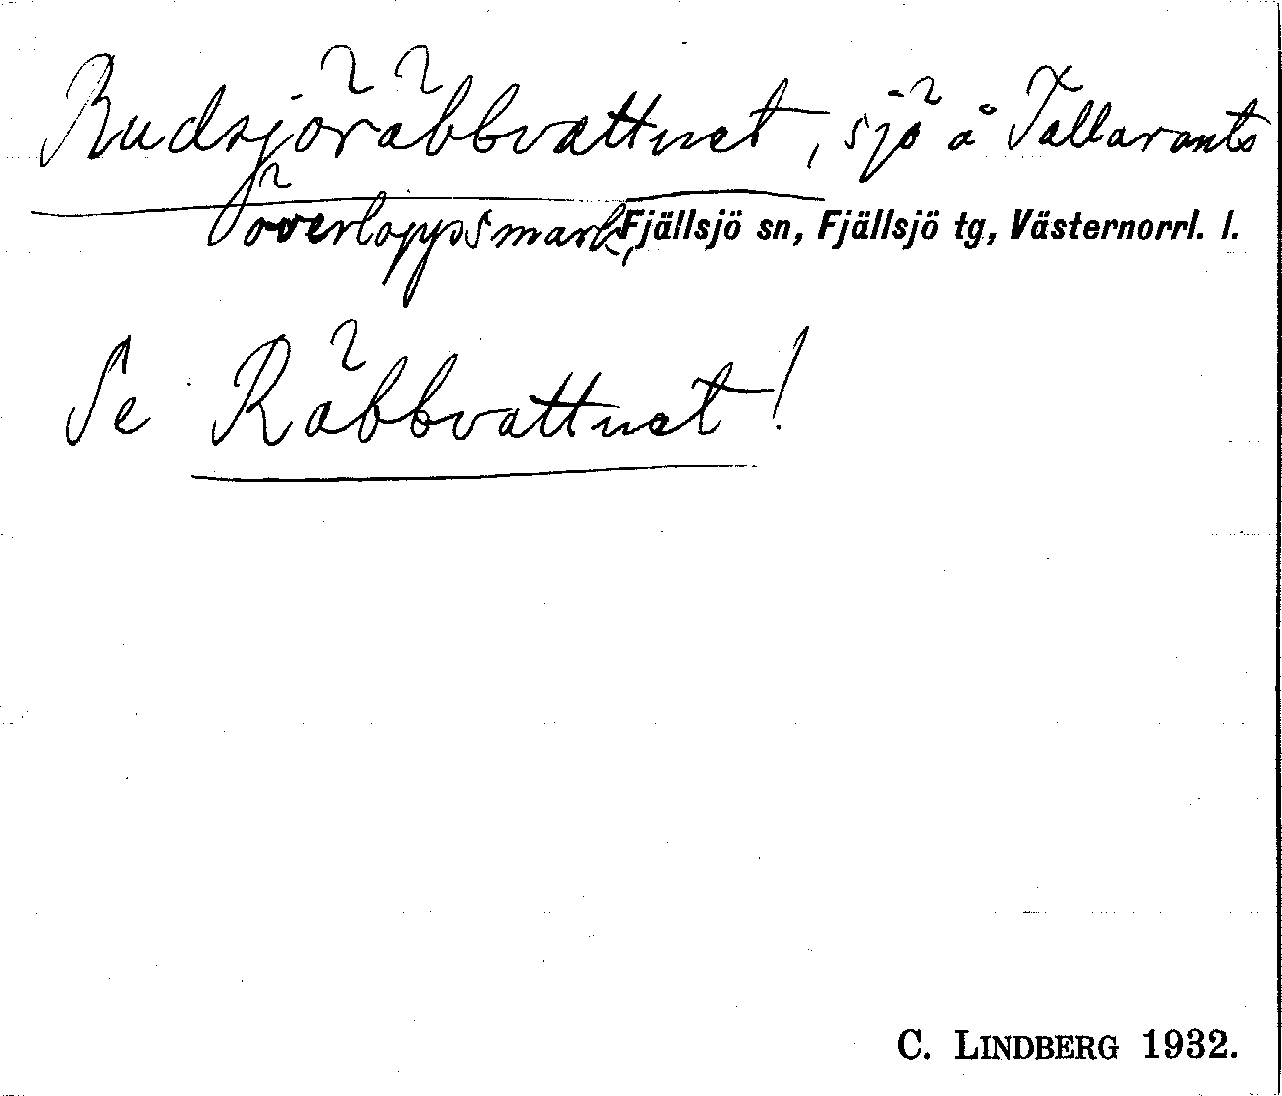 Rudsjöräbbvattnet, sjö å Tallarånts
överloppsmark, Fjällsjö sn, Fjällsjö tg, Västernorrl. l.
Se Räbbvattnet!
C. LINDBERG 1932.